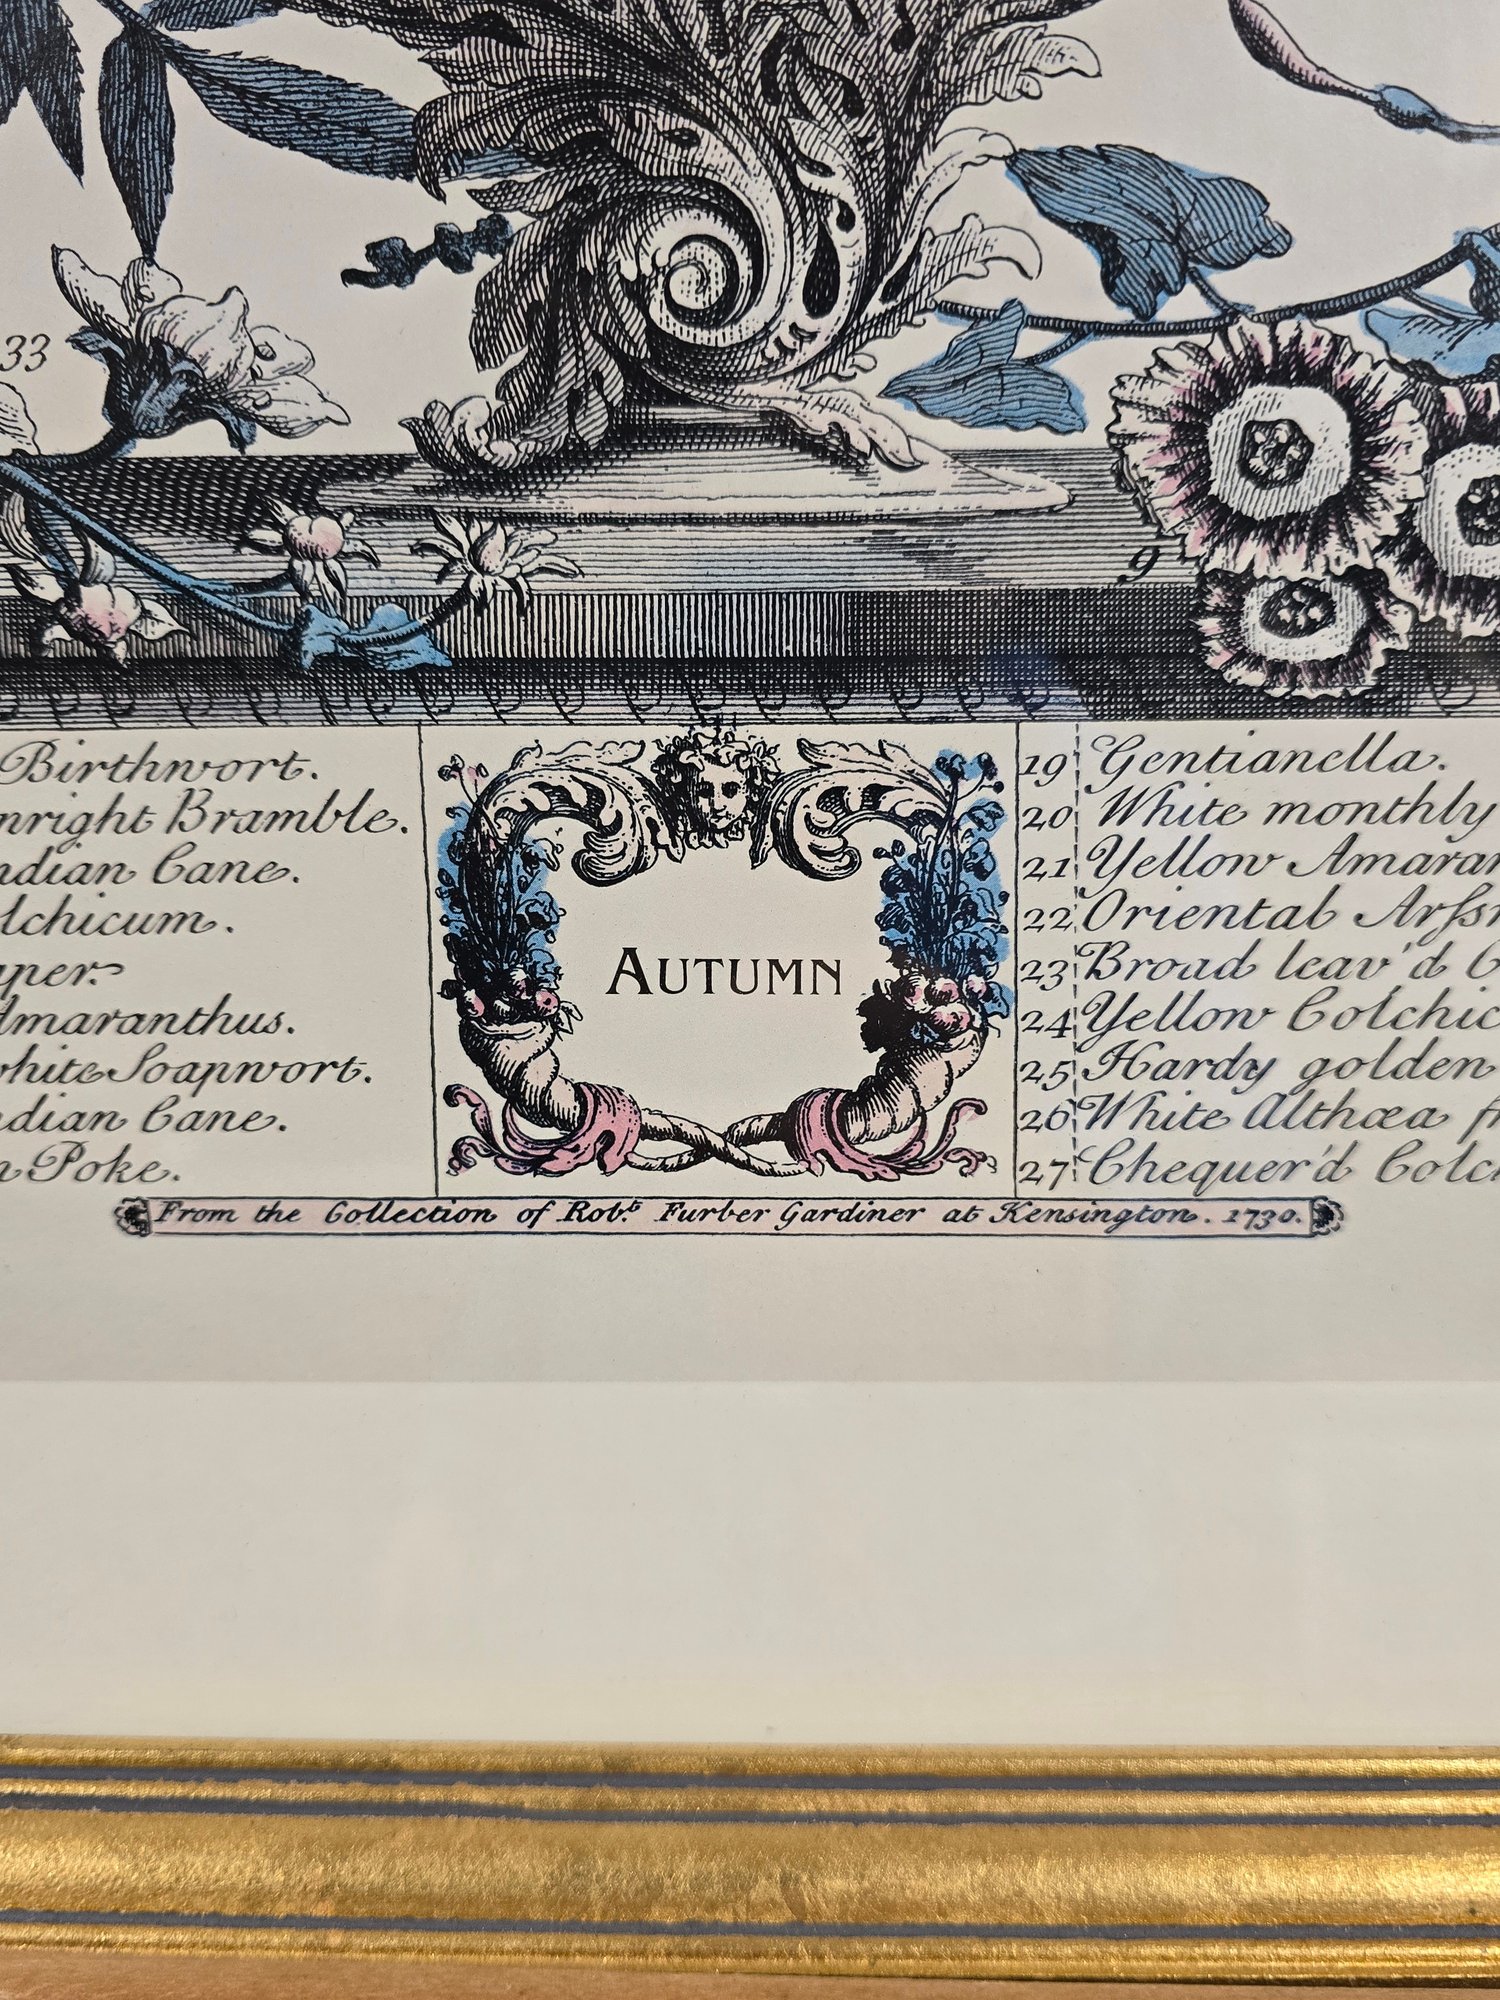 33
9
Birthwort.
Bramble.
Cane.
per.
maranthus.
white Soapwort.
Cane.
Poke.
AUTUMN
19 Gentianella.
20 White monthly
21 Yellow Amaran
22 Oriental
23 Broad leav'd C
24 Yellow Colchic
25 Hardy golden
26 White Althæa f
27 Chequer'd Colc
From the Collection of Robt. Furber Gardiner at Kensington. 1730.